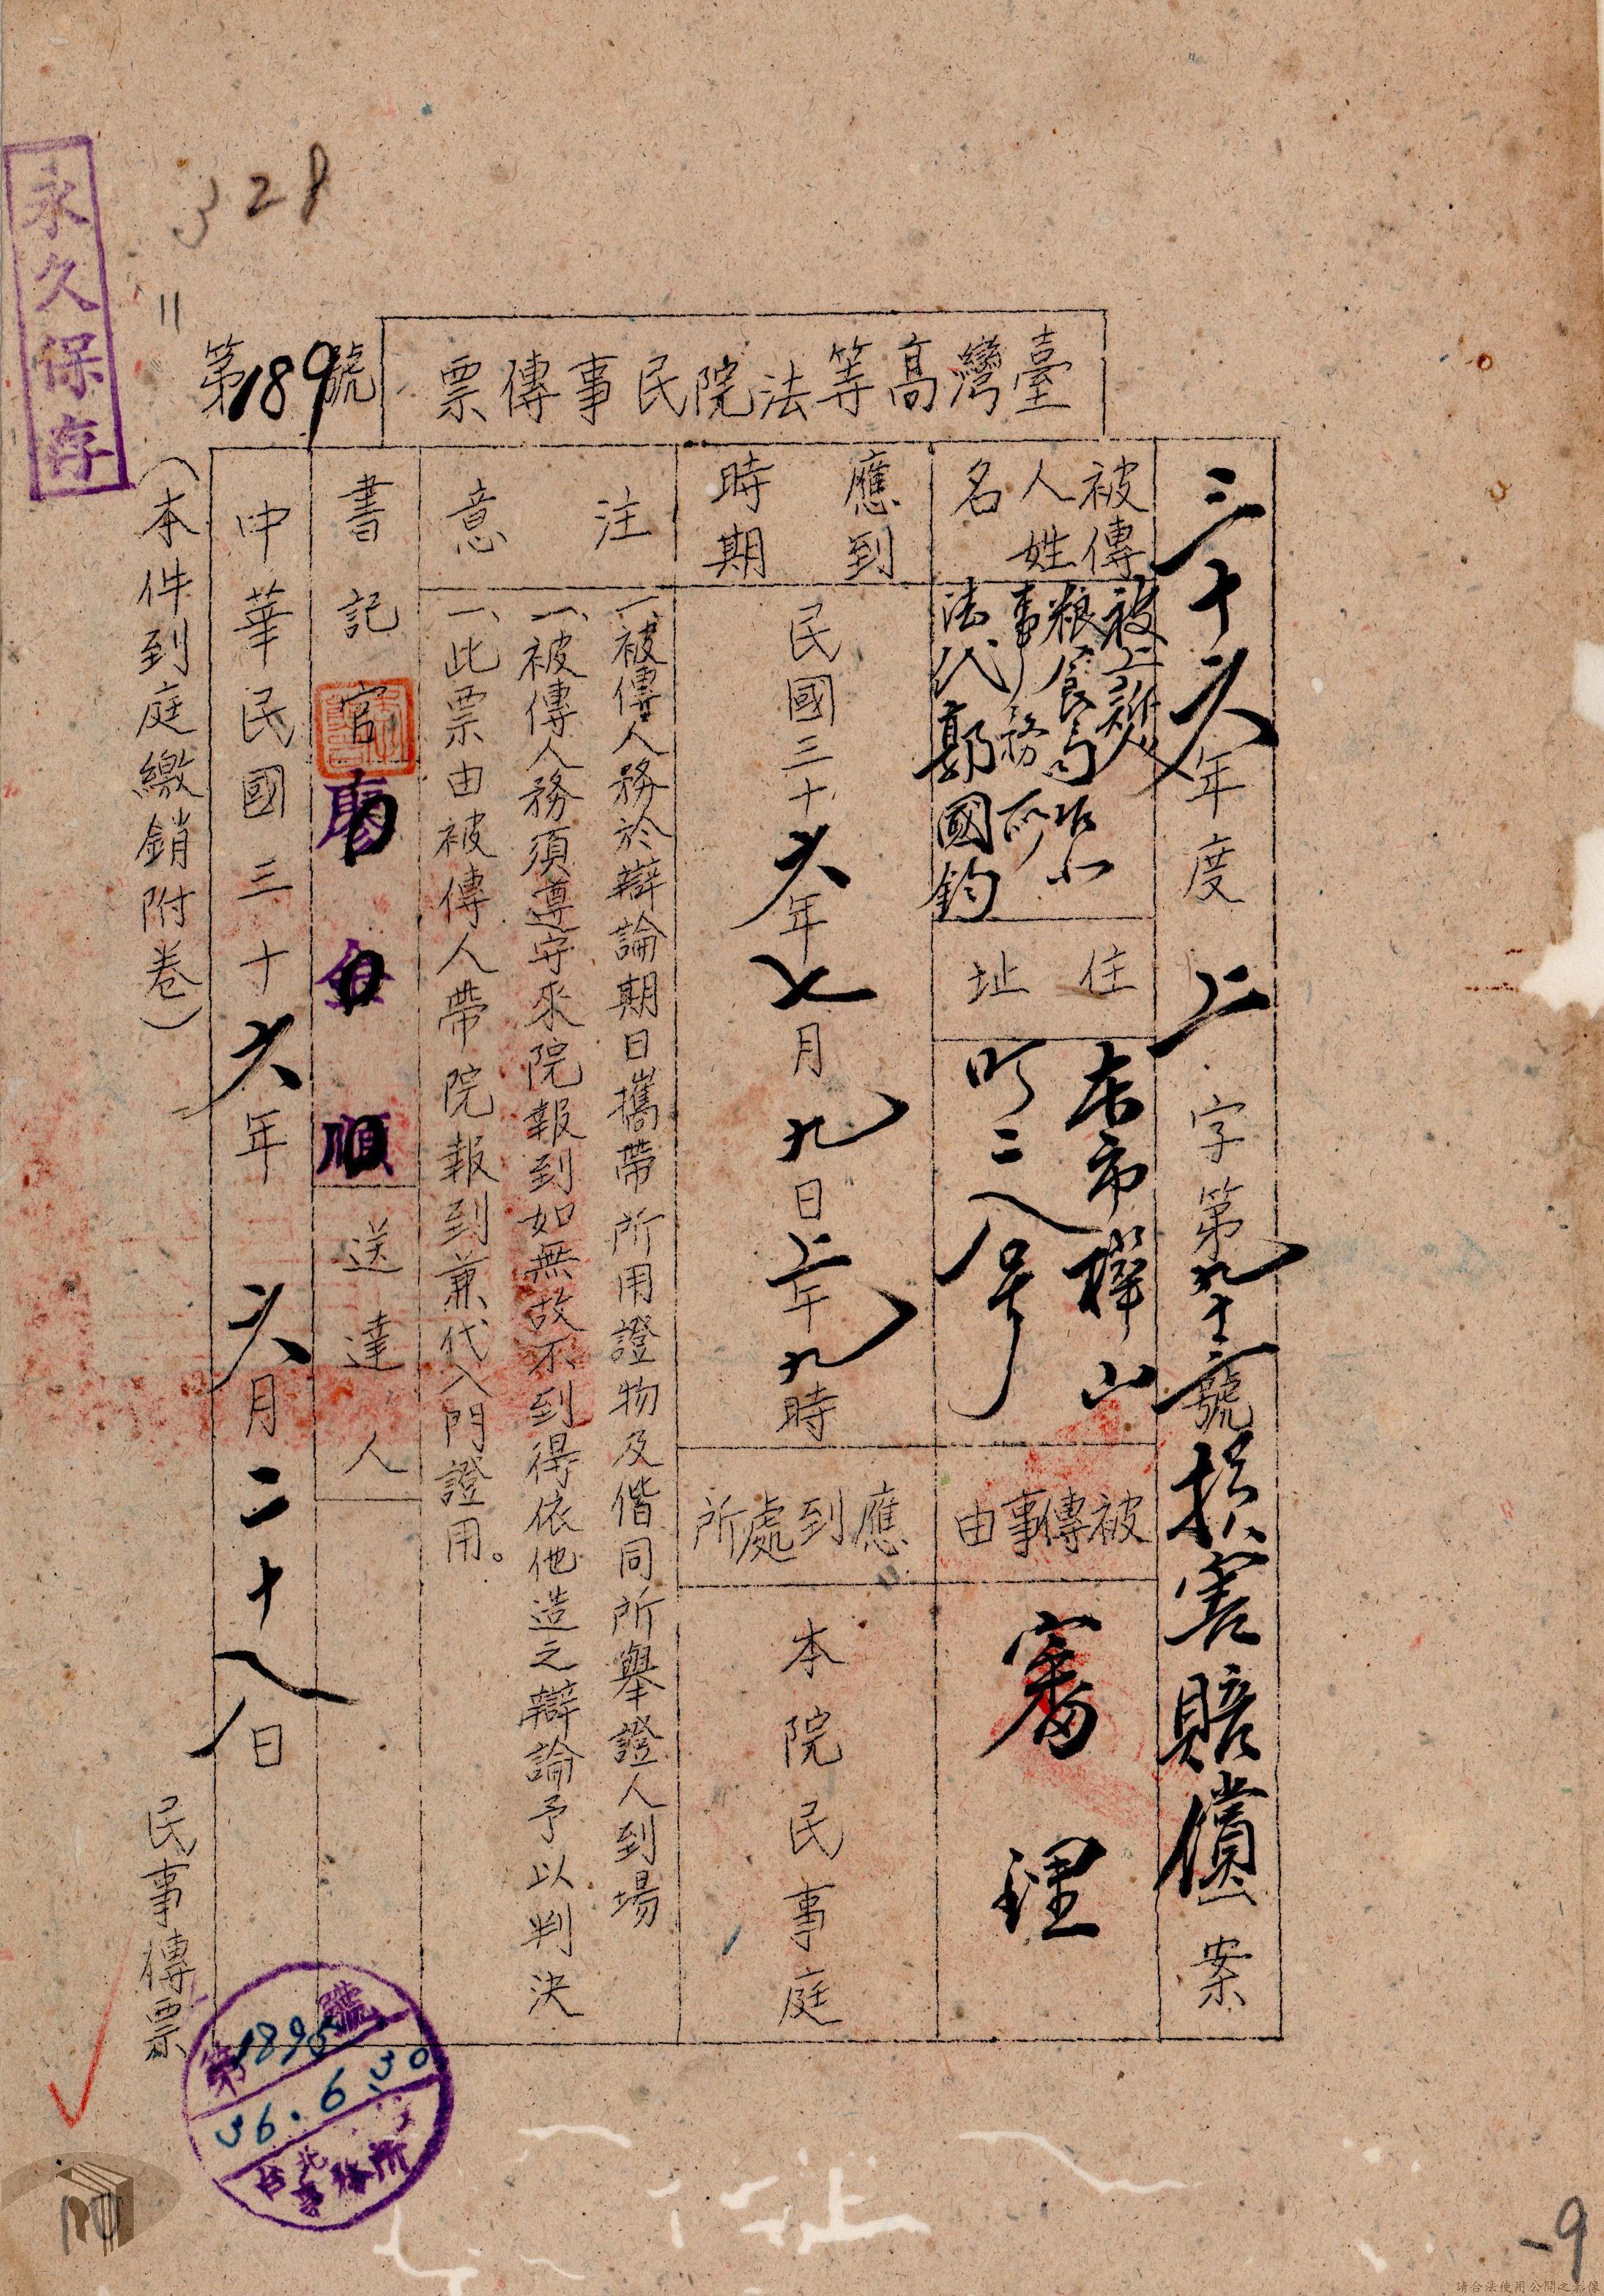 永久保存
328
臺灣高等法院民事傳票
第189號
三十六年度上字第九十三號損害賠償一案
被傳人姓名
被上訴人
粮食局台北
事務所
法代郭國鈞
住址
本市樺山
町二八号
被傳事由
審理
應到時期
民國三十六年七月九日上午九時
應到處所
本院民事庭
注意
一、被傳人務於辯論期日攜帶所用證物及偕同所舉證人到場
一、被傳人務須遵守來院報到如無故不到得依他造之辯論予以判決
一、此票由被傳人帶院報到兼代入門證用。
書記官
順
送達人
中華民國三十六年六月二十八日
（本件到庭繳銷附卷）
民事傳票
第1895號
36.6.30
台北事務所
10
-9
請合法使用公開之影像